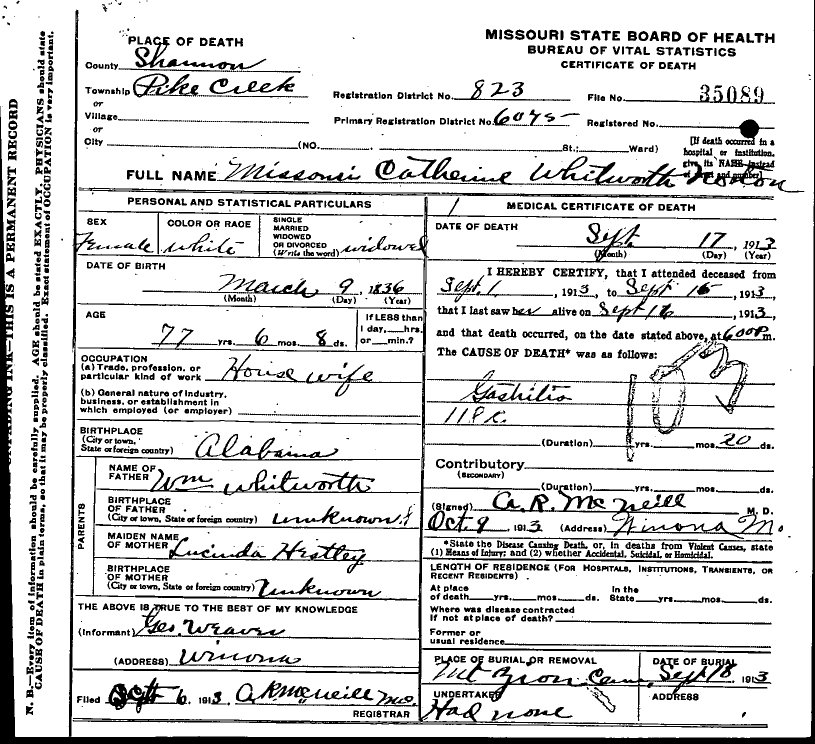 MISSOURI STATE BOARD OF HEALTH
BUREAU OF VITAL STATISTICS
CERTIFICATE OF DEATH
PLACE OF DEATH
County Shannon
Township Pike Creek
or
Village
or
City (NO. St.; Ward)
Registration District No. 823 File No. 35089
Primary Registration District No. 6075 Registered No.
[If death occurred in a
hospital or institution,
give its NAME instead
of street and number]
FULL NAME Missouri Catherine Whitworth
PERSONAL AND STATISTICAL PARTICULARS
SEX Female
COLOR OR RACE white
SINGLE
MARRIED
WIDOWED
OR DIVORCED
(Write the word) widowed
DATE OF BIRTH
March 9, 1836
(Month) (Day) (Year)
AGE
77 yrs. 6 mos. 8 ds.
If LESS than
1 day, hrs.
or min.?
OCCUPATION
(a) Trade, profession, or
particular kind of work House wife
(b) General nature of industry,
business, or establishment in
which employed (or employer)
BIRTHPLACE
(City or town,
State or foreign country) Alabama
PARENTS
NAME OF
FATHER Wm Whitworth
BIRTHPLACE
OF FATHER
(City or town, State or foreign country) unknown
MAIDEN NAME
OF MOTHER Lucinda
BIRTHPLACE
OF MOTHER
(City or town, State or foreign country) Unknown
THE ABOVE IS TRUE TO THE BEST OF MY KNOWLEDGE
(Informant) Geo. Weaver
(ADDRESS) Winona
Filed 6 1913 A R McNeill
REGISTRAR
MEDICAL CERTIFICATE OF DEATH
DATE OF DEATH
Sept. 17, 1913
(Month) (Day) (Year)
I HEREBY CERTIFY, that I attended deceased from
Sept. 1, 1913, to Sept 16, 1913,
that I last saw her alive on Sept 16, 1913,
and that death occurred, on the date stated above, at 6:00 P m.
The CAUSE OF DEATH* was as follows:
103
118
(Duration) yrs. mos. 20 ds.
Contributory
(SECONDARY)
(Duration) yrs. mos. ds.
(Signed) A. R. McNeill M. D.
Oct. 9 1913 (Address) Winona Mo.
*State the Disease Causing Death, or, in deaths from Violent Causes, state
(1) Means of Injury; and (2) whether Accidental, Suicidal, or Homicidal.
LENGTH OF RESIDENCE (FOR HOSPITALS, INSTITUTIONS, TRANSIENTS, OR
RECENT RESIDENTS)
At place
of death yrs. mos. ds.
In the
State yrs. mos. ds.
Where was disease contracted
if not at place of death?
Former or
usual residence
PLACE OF BURIAL OR REMOVAL DATE OF BURIAL
Mt Zion Cem Sept 18, 1913
UNDERTAKER ADDRESS
Had none
N. B.—Every item of information should be carefully supplied. AGE should be stated EXACTLY. PHYSICIANS should state
CAUSE OF DEATH in plain terms, so that it may be properly classified. Exact statement of OCCUPATION is very important.
INK—THIS IS A PERMANENT RECORD